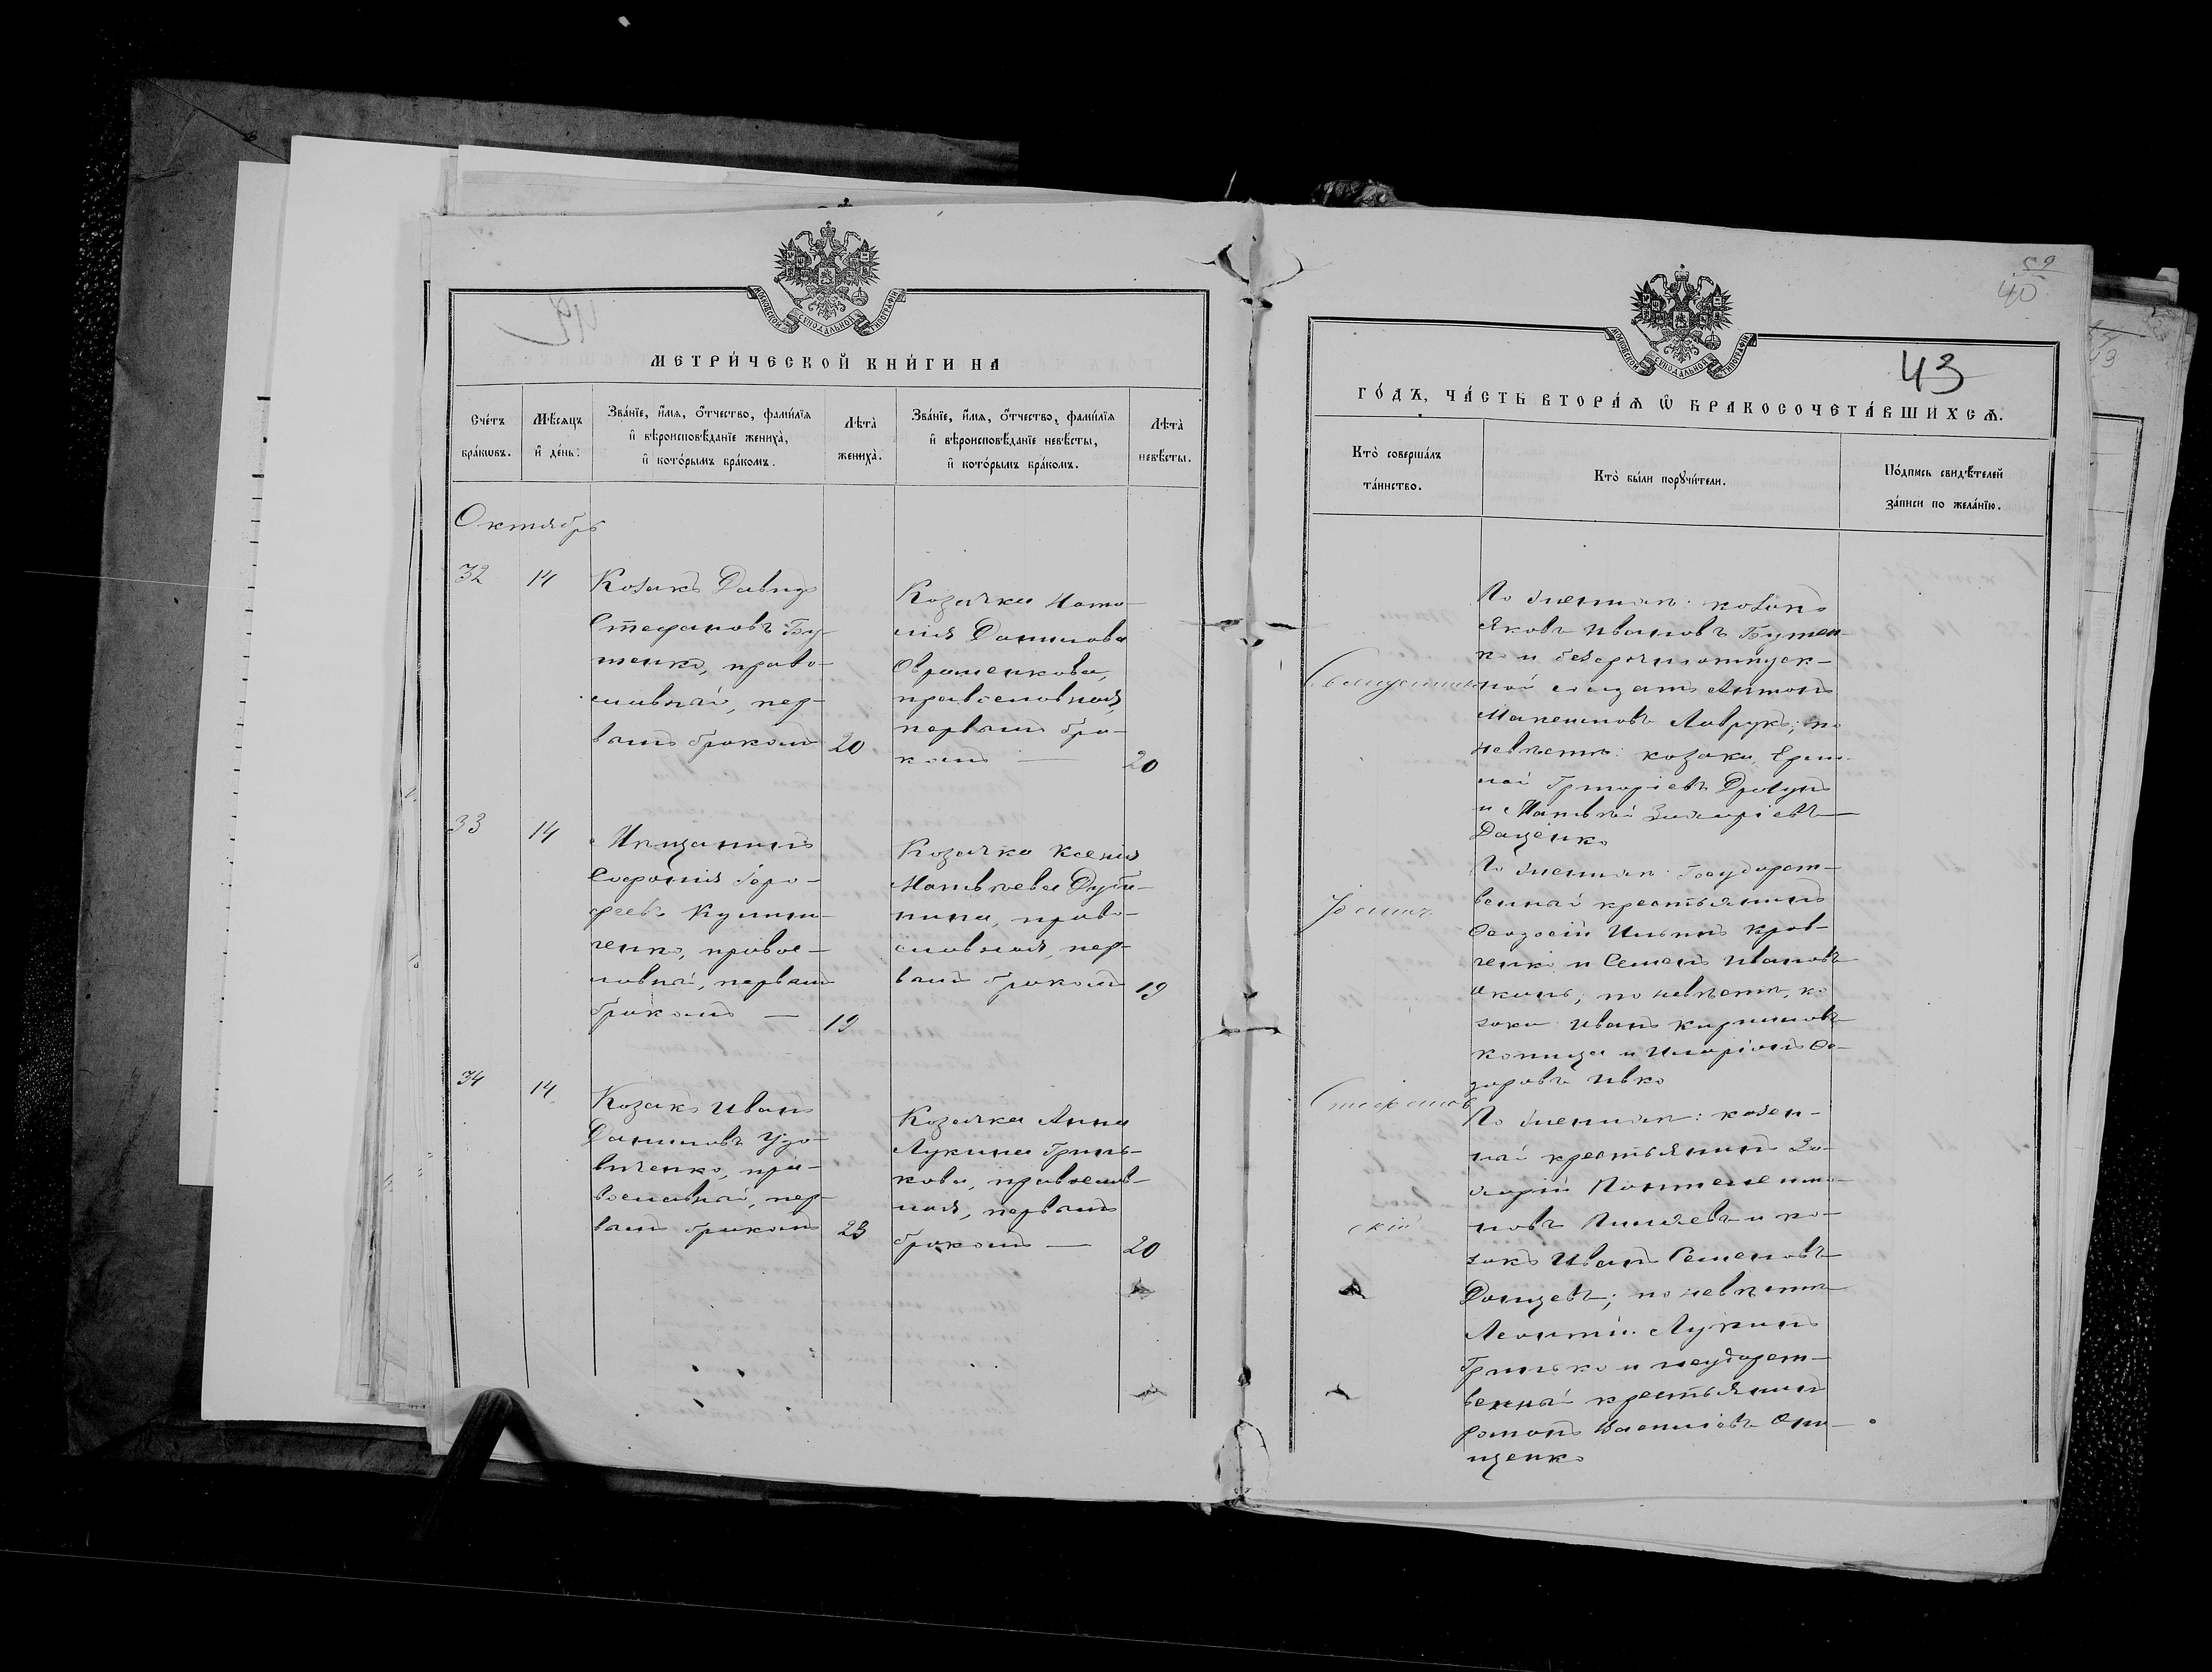 МЕТРИ́ЧЕСКОЙ КНИ́ГИ НА
Сче́тъ бра́кѡвъ.
Мѣ́сѧцъ и҆ де́нь.
Зва́нїе, и҆́мѧ, ѻ҆́тчество, фами́лїѧ и҆ вѣроисповѣ́данїе жениха̀, и҆ кото́рымъ бра́комъ.
Лѣта̀ жениха̀.
Зва́нїе, и҆́мѧ, ѻ҆́тчество, фами́лїѧ и҆ вѣроисповѣ́данїе невѣ́сты, и҆ кото́рымъ бра́комъ.
Лѣта̀ невѣ́сты.
Октябрь
32
14
Козакъ Давидъ
Стефановъ Бу-
тенко, право-
славный, пер-
вымъ бракомъ
20
Козачка Ната-
лія Данилова
Авраменкова,
православная,
первымъ бра-
комъ —
20
33
14
Мѣщанинъ
Софроній
Кулини-
ченко, правос-
лавный, первымъ
бракомъ —
19
Козачка Ксенія
Матвѣева
право-
славная, пер-
вымъ бракомъ
19
34
14
Козакъ Иванъ
Даниловъ Удо-
виченко, пра-
вославный, пер-
вымъ бракомъ
23
Козачка Анна
Лукина Гринь-
кова, православ-
ная, первымъ
бракомъ —
20
52
40
43
ГО́ДЪ, ЧА́СТЬ ВТОРА́Ѧ Ѽ БРАКОСОЧЕТА́ВШИХСѦ.
Кто̀ соверша́лъ та́инство.
Кто̀ бы́ли порꙋчи́тели.
По́дпись свидѣ́телей за́писи по жела́нїю.
Священникъ
Іоаннъ
Стефанов
скій
По женихѣ: козакъ
Яковъ Ивановъ Бутен-
ко и безсрочноотпуск-
ной солдатъ Антонъ
Максимовъ Лаврукъ; по
невѣстѣ: козаки
Григоріевъ
и Матвѣй Захаріевъ
Даценко
По женихѣ: Государст-
венный крестьянинъ
Феодосій Ильинъ Крав-
ченко и Семенъ Ивановъ
по невѣстѣ, ко-
заки: Иванъ Кириловъ
Копица и Иларіонъ Ѳе-
доровъ Ивко
По женихѣ: казен-
ный крестьянинъ За-
харій Пантелеимо-
новъ и ко-
закъ Иванъ Семеновъ
Донцевъ; по невѣстѣ
Леонтій Лукинъ
Гринько и государст-
венный крестьянинъ
Романъ Василіевъ Они-
щенко